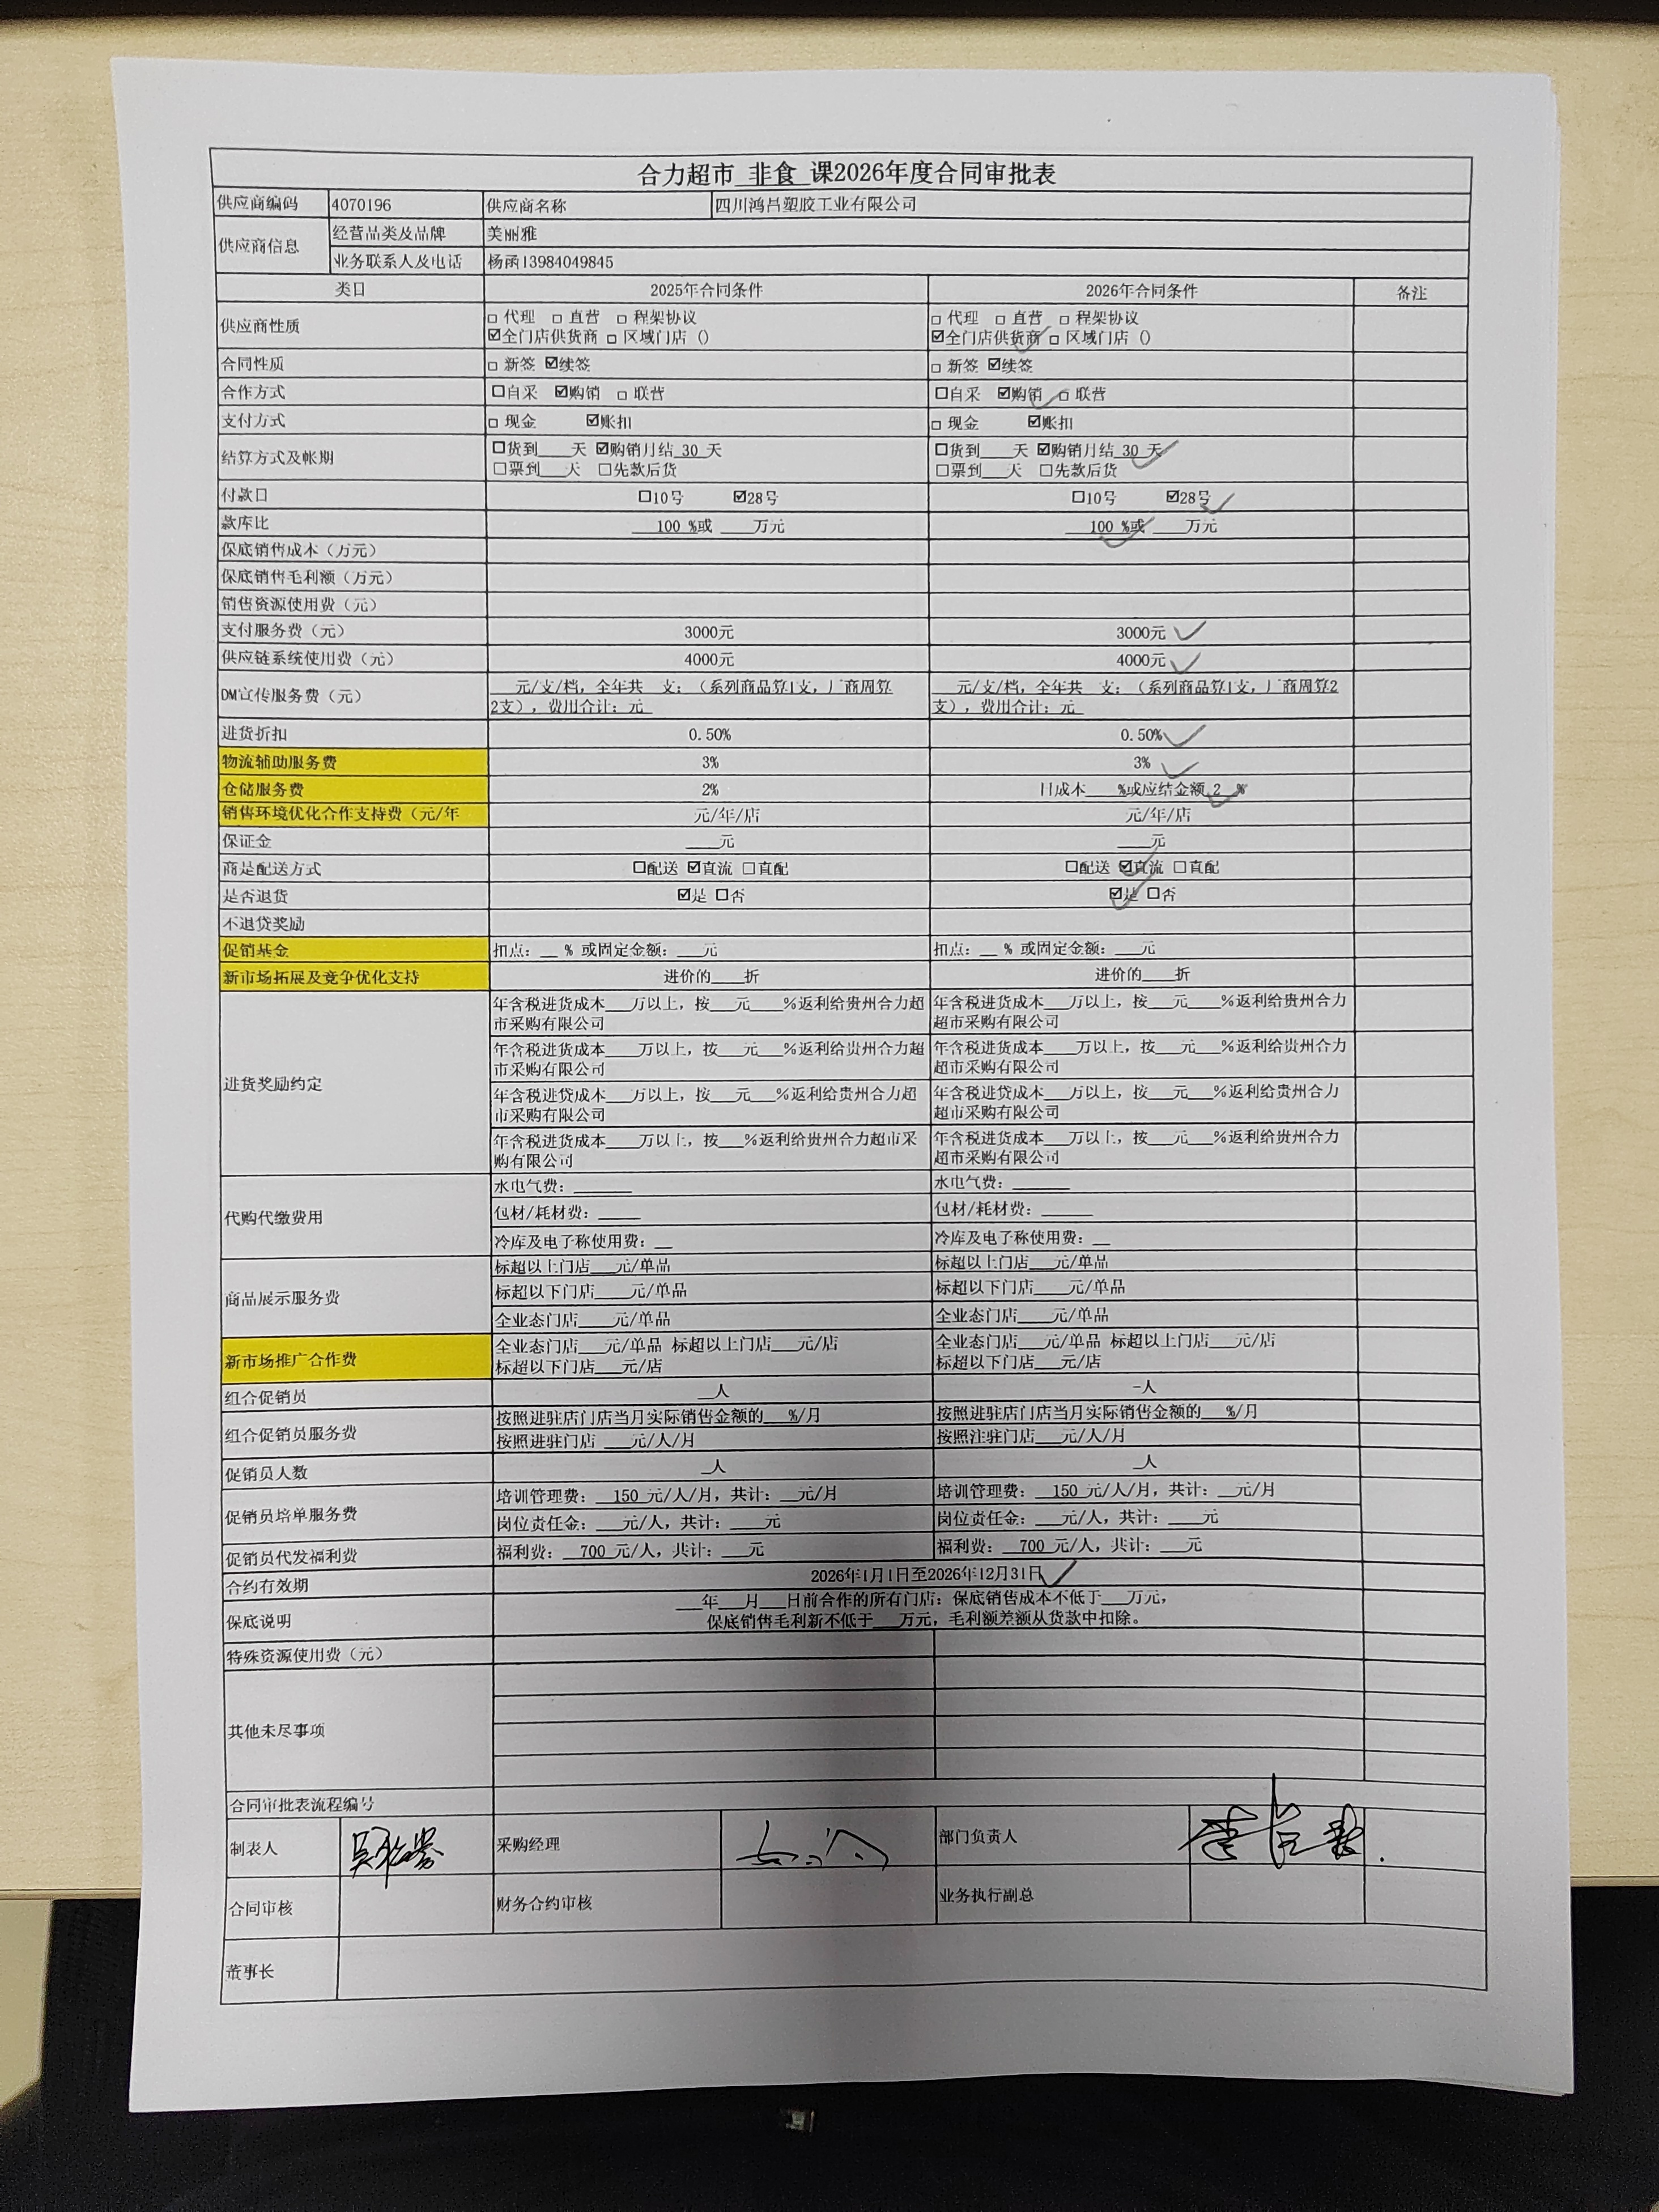 合力超市 非食 课2026年度合同审批表
供应商编码 4070196 供应商名称 四川鸿昌塑胶工业有限公司
供应商信息 经营品类及品牌 美丽雅
业务联系人及电话 杨函13984049845
类目 2025年合同条件 2026年合同条件 备注
供应商性质 □ 代理 □ 直营 □ 程架协议 □ 代理 □ 直营 □ 程架协议
☑全门店供货商 □ 区域门店 () ☑全门店供货商 □ 区域门店 ()
合同性质 □ 新签 ☑续签 □ 新签 ☑续签
合作方式 □自采 ☑购销 □ 联营 □自采 ☑购销 □ 联营
支付方式 □ 现金 ☑账扣 □ 现金 ☑账扣
结算方式及帐期 □货到___天 ☑购销月结 30 天 □货到___天 ☑购销月结 30 天
□票到___天 □先款后货 □票到___天 □先款后货
付款日 □10号 ☑28号 □10号 ☑28号
款库比 100 %或 ___万元 100 %或 ___万元
保底销售成本（万元）
保底销售毛利额（万元）
销售资源使用费（元）
支付服务费（元） 3000元 3000元
供应链系统使用费（元） 4000元 4000元
DM宣传服务费（元） 元/支/档，全年共 支；（系列商品算1支，厂商周算 元/支/档，全年共 支；（系列商品算1支，厂商周算2
2支），费用合计：元 支），费用合计：元
进货折扣 0.50% 0.50%
物流辅助服务费 3% 3%
仓储服务费 2% 日成本___%或应结金额 2 %
销售环境优化合作支持费（元/年 元/年/店 元/年/店
保证金 ___元 ___元
商是配送方式 □配送 ☑直流 □直配 □配送 ☑直流 □直配
是否退货 ☑是 □否 ☑是 □否
不退贷奖励
促销基金 扣点：__ % 或固定金额：___元 扣点：__ % 或固定金额：___元
新市场拓展及竞争优化支持 进价的___折 进价的___折
进货奖励约定 年含税进货成本___万以上，按___元___%返利给贵州合力超 年含税进货成本___万以上，按___元___%返利给贵州合力
市采购有限公司 超市采购有限公司
年含税进货成本___万以上，按___元___%返利给贵州合力超 年含税进货成本___万以上，按___元___%返利给贵州合力
市采购有限公司 超市采购有限公司
年含税进贷成本___万以上，按___元___%返利给贵州合力超 年含税进贷成本___万以上，按___元___%返利给贵州合力
市采购有限公司 超市采购有限公司
年含税进货成本___万以上，按___%返利给贵州合力超市采 年含税进货成本___万以上，按___元___%返利给贵州合力
购有限公司 超市采购有限公司
代购代缴费用 水电气费：______ 水电气费：______
包材/耗材费：____ 包材/耗材费：_____
冷库及电子称使用费：__ 冷库及电子称使用费：__
商品展示服务费 标超以上门店___元/单品 标超以上门店___元/单品
标超以下门店____元/单品 标超以下门店____元/单品
全业态门店____元/单品 全业态门店____元/单品
新市场推广合作费 全业态门店___元/单品 标超以上门店___元/店 全业态门店___元/单品 标超以上门店___元/店
标超以下门店___元/店 标超以下门店___元/店
组合促销员 __人 -人
组合促销员服务费 按照进驻店门店当月实际销售金额的___%/月 按照进驻店门店当月实际销售金额的___%/月
按照进驻门店 ___元/人/月 按照注驻门店___元/人/月
促销员人数 _人 _人
促销员培单服务费 培训管理费： 150 元/人/月，共计：__元/月 培训管理费： 150 元/人/月，共计：__元/月
岗位责任金：___元/人，共计：____元 岗位责任金：___元/人，共计：____元
促销员代发福利费 福利费： 700 元/人，共计：___元 福利费： 700 元/人，共计：___元
合约有效期 2026年1月1日至2026年12月31日
保底说明 ___年___月___日前合作的所有门店：保底销售成本不低于___万元，
保底销售毛利新不低于___万元，毛利额差额从货款中扣除。
特殊资源使用费（元）
其他未尽事项
合同审批表流程编号
制表人 采购经理 部门负责人
合同审核 财务合约审核 业务执行副总
董事长